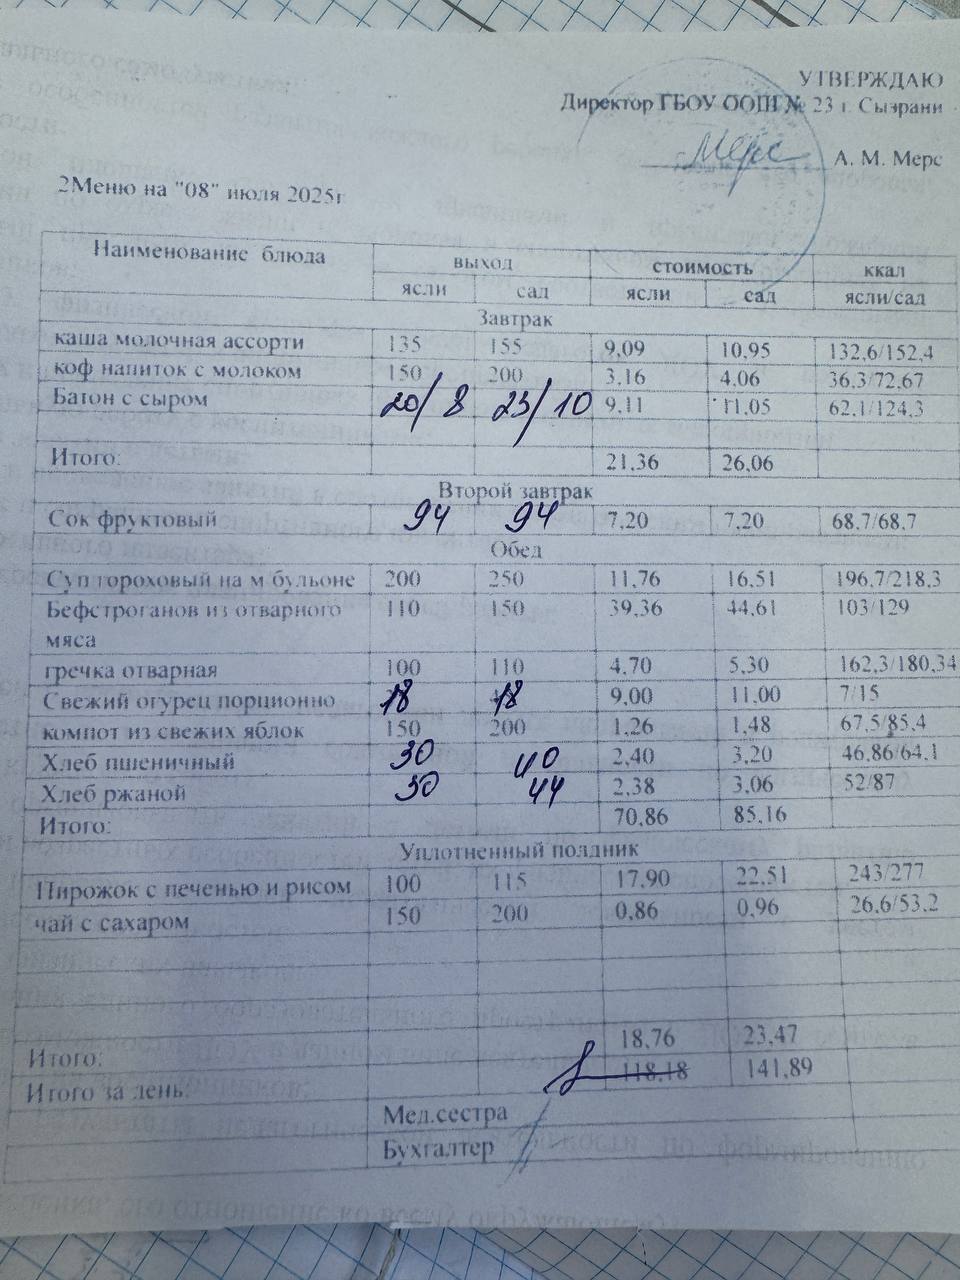 УТВЕРЖДАЮ
Директор ГБОУ ООШ № 23 г. Сызрани
Мерс А. М. Мерс
2Меню на "08" июля 2025г
Наименование блюда выход стоимость ккал
ясли сад ясли сад ясли/сад
Завтрак
каша молочная ассорти 135 155 9,09 10,95 132,6/152,4
коф напиток с молоком 150 200 3,16 4,06 36,3/72,67
Батон с сыром 20/8 23/10 9,11 11,05 62,1/124,3
Итого: 21,36 26,06
Второй завтрак
Сок фруктовый 94 94 7,20 7,20 68,7/68,7
Обед
Суп гороховый на м бульоне 200 250 11,76 16,51 196,7/218,3
Бефстроганов из отварного 110 150 39,36 44,61 103/129
мяса
гречка отварная 100 110 4,70 5,30 162,3/180,34
Свежий огурец порционно 18 18 9,00 11,00 7/15
компот из свежих яблок 150 200 1,26 1,48 67,5/85,4
Хлеб пшеничный 30 40 2,40 3,20 46,86/64,1
Хлеб ржаной 30 44 2,38 3,06 52/87
Итого: 70,86 85,16
Уплотненный полдник
Пирожок с печенью и рисом 100 115 17,90 22,51 243/277
чай с сахаром 150 200 0,86 0,96 26,6/53,2
Итого: 18,76 23,47
Итого за день: 118,18 141,89
Мед.сестра
Бухгалтер